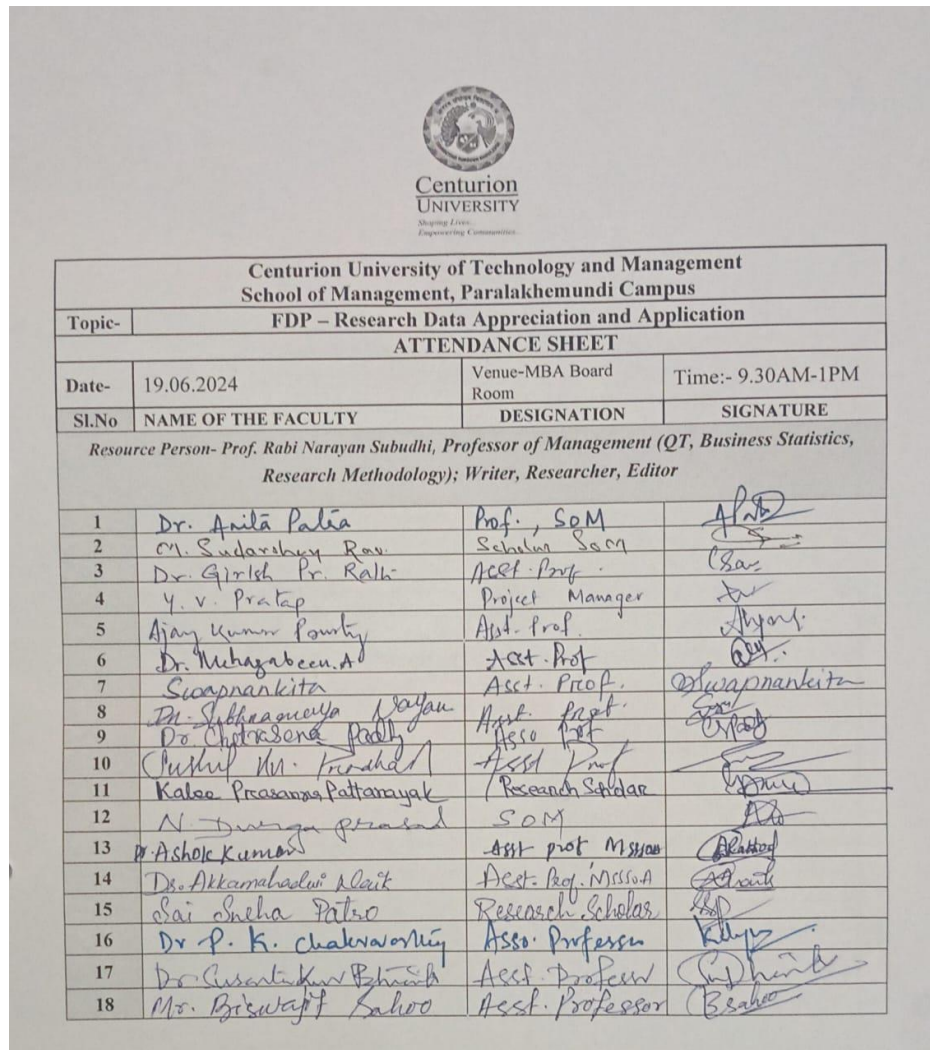 Centurion
UNIVERSITY
Shaping Lives...
Empowering Communities...
Centurion University of Technology and Management
School of Management, Paralakhemundi Campus
Topic- FDP – Research Data Appreciation and Application
ATTENDANCE SHEET
Date- 19.06.2024 Venue-MBA Board Room Time:- 9.30AM-1PM
Sl.No NAME OF THE FACULTY DESIGNATION SIGNATURE
Resource Person- Prof. Rabi Narayan Subudhi, Professor of Management (QT, Business Statistics,
Research Methodology); Writer, Researcher, Editor
1 Dr. Anita Patra Prof., SOM
2 M. Sudarshan Rao. Scholar SOM
3 Dr. Girish Pr. Rath Asst. Prof.
4 Y. V. Pratap Project Manager
5 Ajay Kumar Asst. Prof.
6 Dr. Mehazabeen. A Asst. Prof
7 Swapnankita Asst. Prof. Swapnankita
8 Dr. Nayan Asst. Prof.
9 Dr. Chitrasena Padhy Asso Prof
10 Sushil Kr. Pradhan Asst Prof
11 Kalee Prasanna Pattanayak Research Scholar
12 N. Durga prasad SOM
13 Dr. Ashok Kumar Asst prof MSSSoA
14 Dr. Akkamahadevi Naik Asst. Prof, MSSSoA
15 Sai Sneha Patro Research Scholar
16 Dr P. K. Chakravorthy Asso. Professor
17 Dr. Asst. Professor
18 Mr. Biswajit Sahoo Asst. Professor BSahoo